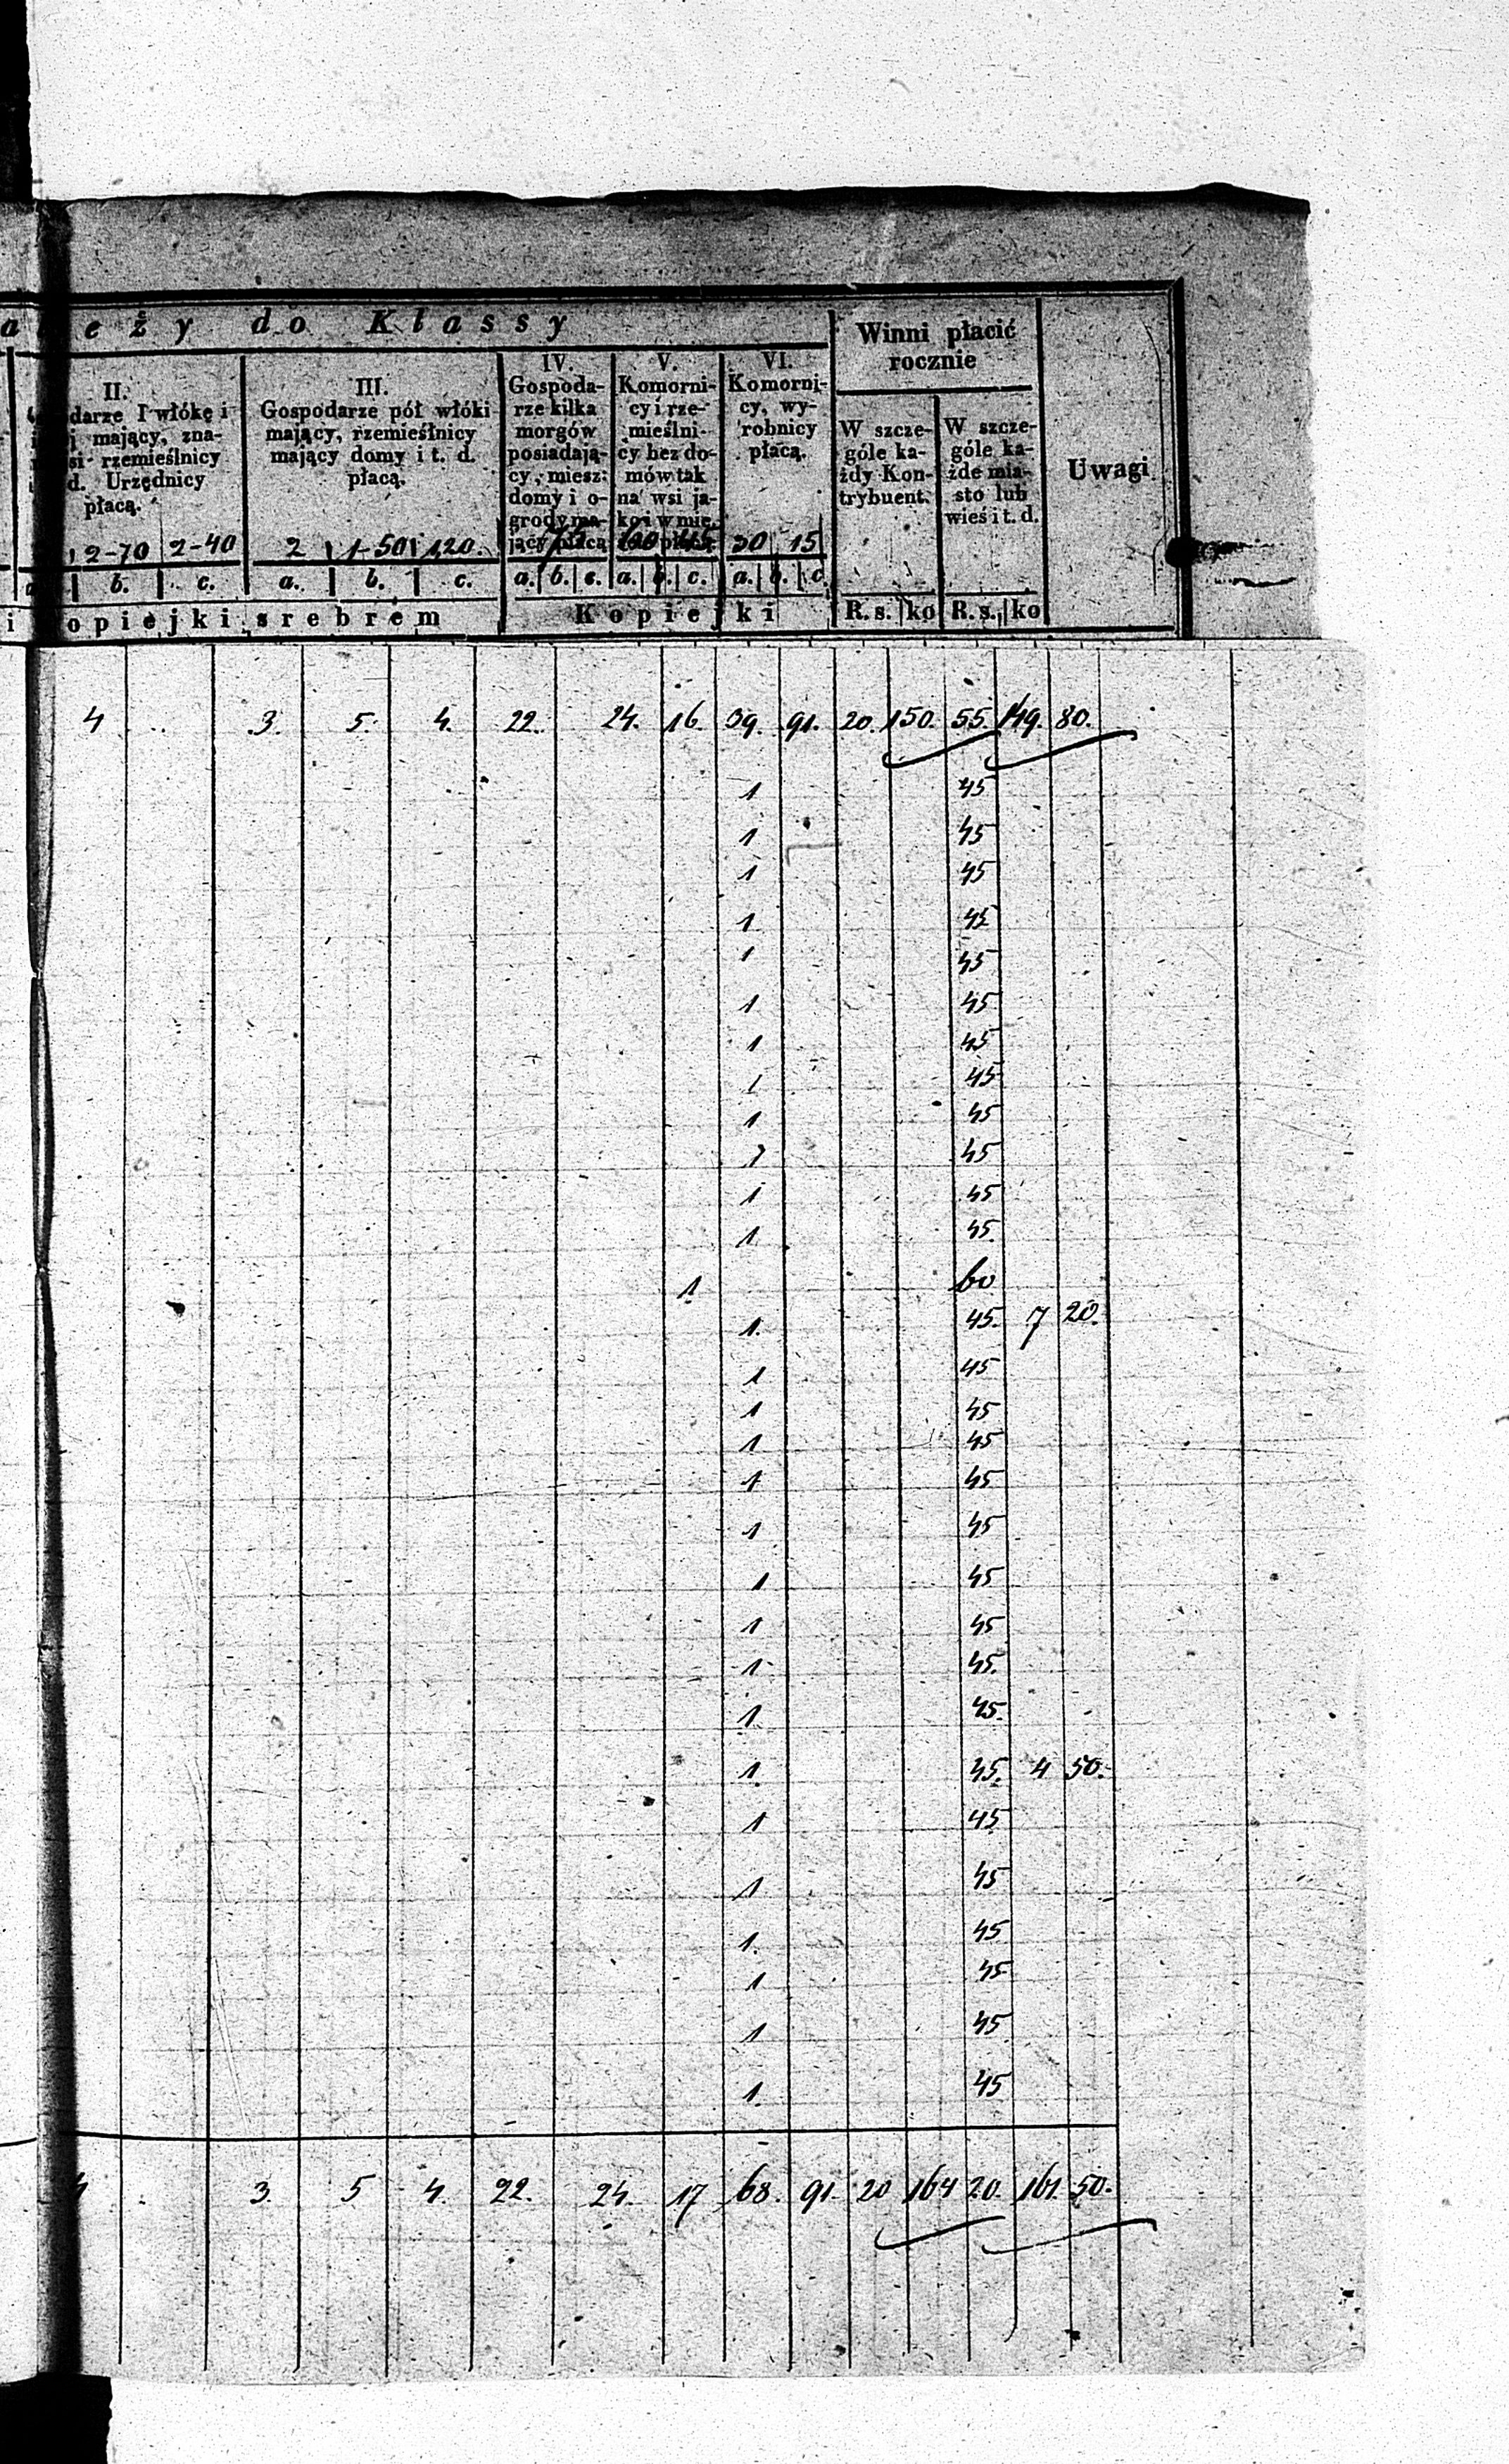 a eży do Klassy
Winni płacić
rocznie
II.
darze 1 włókę i
mający, zna-
si- rzemieślnicy
d. Urzędnicy
płacą.
III.
Gospodarze pół włóki
mający, rzemieślnicy
mający domy i t. d.
płacą.
IV.
Gospoda-
rze kilka
morgów
posiadają-
cy, miesz:
domy i o-
grody ma-
jący płacą
V.
Komorni-
cy i rze-
mieślni-
cy bez do-
mów tak
na wsi ja-
ko i w mie.
VI.
Komorni-
cy, wy-
robnicy
płacą.
W szcze-
góle ka-
żdy Kon-
trybuent.
W szcze-
góle ka-
żde mia-
sto lub
wieś i t. d.
Uwagi
2-70 2-40 2 1-50 120. 30 15
b. c. a. b. c. a. b. c. a. b. c. a. b. c.
i opiejki srebrem Kopiejki R. s. ko R. s. ko
4 .. 3. 5. 4. 22. 24. 16. 39. 91. 20. 150. 55. 149. 80.
1 45
1 45
1 45
1 45
1 45
1 45
1 45
1 45
1 45
1 45
1 45
1 45
1 60
1. 45. 7 20.
1 45
1 45
1 45
1 45
1 45
1 45
1 45
1 45.
1 45.
1. 45. 4 50.
1 45
1 45
1. 45
1 45
1 45
1. 45
4 . 3. 5 4. 22. 24. 17 68. 91. 20 164 20. 161. 50.